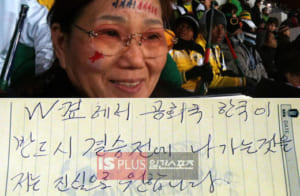 W컵에서 공화국 한국이
반드시 결승전에 나가는것을
IS PLUS 일간스포츠
저는 진심으로